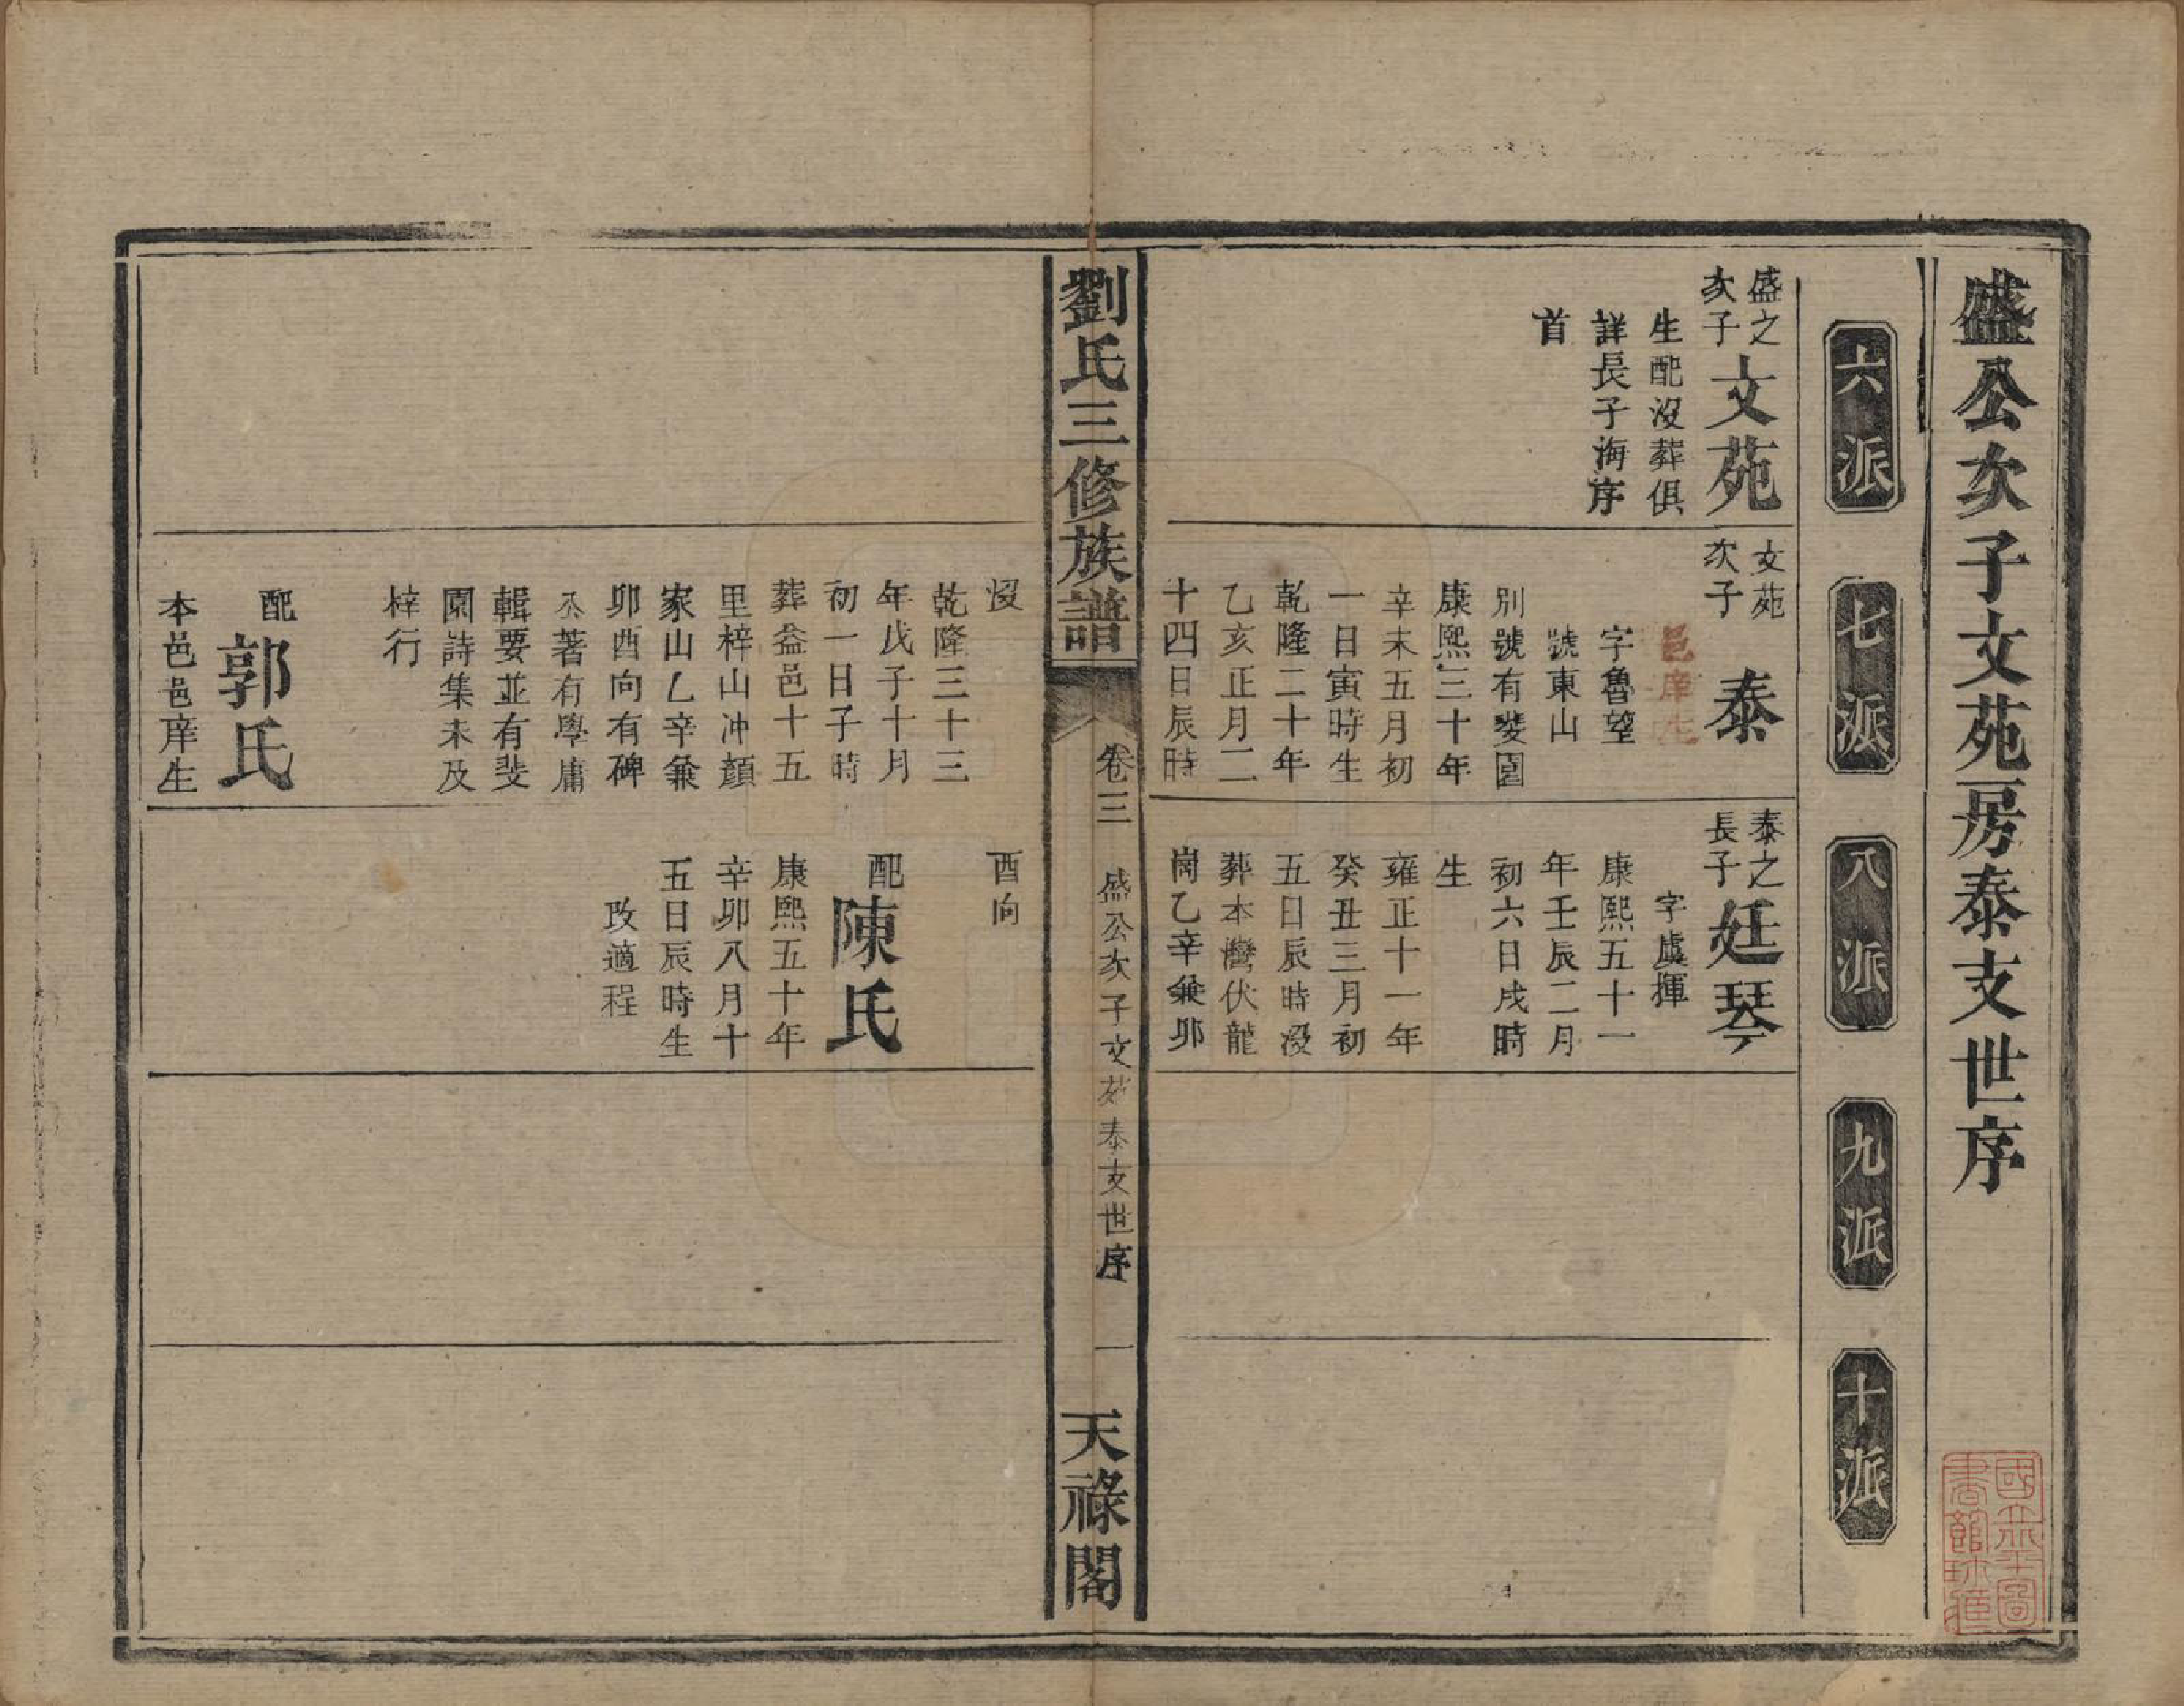 盛公次子文苑房泰支世序
六派
七派
八派
九派
十派
盛之
次子
文苑
生配沒葬俱
詳長子海序
首
文苑
次子
泰
邑庠生
字魯望
號東山
別號有斐園
康熙三十年
辛未五月初
一日寅時生
乾隆二十年
乙亥正月二
十四日辰時
泰之
長子
廷琴
字虞揮
康熙五十一
年壬辰二月
初六日戌時
生
雍正十一年
癸丑三月初
五日辰時沒
葬本灣伏龍
崗乙辛兼卯
劉氏三修族譜
卷三
盛公次子文苑泰支世序
一
天祿閣
沒
乾隆三十三
年戊子十月
初一日子時
葬益邑十五
里梓山冲顏
家山乙辛兼
卯酉向有碑
公著有學庸
輯要並有斐
園詩集未及
梓行
配
郭氏
本邑邑庠生
酉向
配
陳氏
康熙五十年
辛卯八月十
五日辰時生
改適程
國立北平圖
書館珍藏